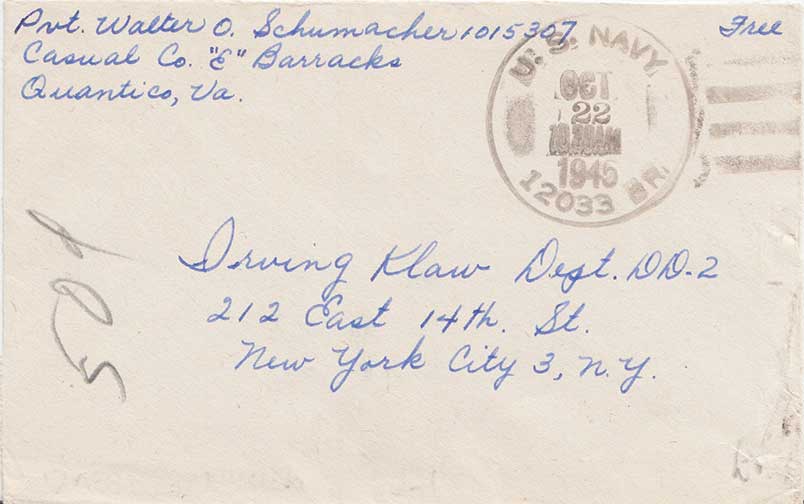 Pvt. Walter O. Schumacher 1015307
Casual Co. "E" Barracks
Quantico, Va.
Free
U.S. NAVY
OCT
22
10:30AM
1945
12033 BR.
Irving Klaw Dept. DD-2
212 East 14th. St.
New York City 3, N.Y.